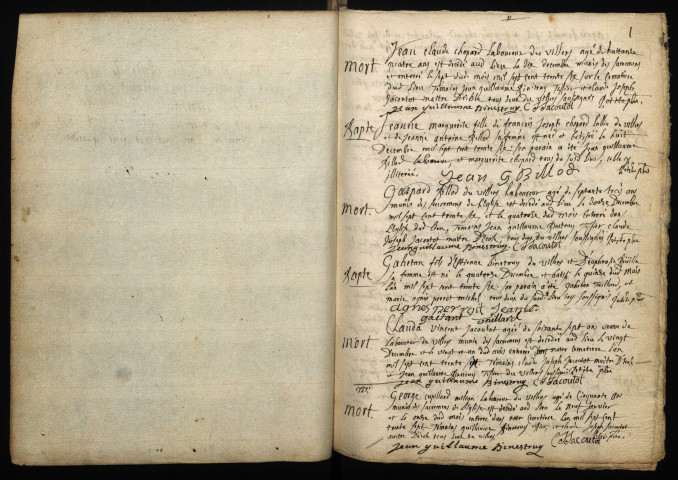 1
Jean claude chopard laboureur du villers agé de huittante
quatre ans est décédé aud lieu le dix decembre munis des sacremens
et enterré le sept dud mois mil sept cent trente six sur le cimetiere
mort
dud lieu temoins jean guillaume Binetruy tissier et claude joseph
Jacoutot maitre d'école tous deux du villers soussignés
jean guillaume Binestruy CJJacoutot
Bapte
Jeanne marguerite fille de françois joseph chopard de villers
et de jeanne antoine Billod sa femme est née et batisée le huit
Decembre mil sept cent trente six son parain a été jean guillaume
Billod laboureur et marguerite chopard tous du susd lieu, celle cy
illiterée.
Jean G Billod
Gaspard Billod du villers laboureur agé de septante trois ans
munis des sacremens de l'Eglise est décédé aud lieu le douze Decembre
mort
mil sept cent trente six, et le quatorze dud mois enterré dans
l'Eglise dud lieu, temoins Jean guillaume Binetruy tissier, claude
Joseph Jacoutot maitre d'école, tous deux du villers soussignés
jean guillaume Binestruy CJJacoutot
Gahetan fils d'Estienne Binetruy du villers et
Bapte
sa femme est né le quatorze Decembre, et batisé le quinze dud mois
l'an mil sept cent trente six son parain a été gahetan vuillard, et
marie agnes perrot michel tous deux du susd lieu soussignés
agnes perrot
gaetant vuillard
Claude vincent Jacoutot agé de soixante sept an
mort
laboureur du villers munis des sacremens est décédé aud lieu le vingt
Decembre et le vingt et un dud mois enterré dans notre cimetiere l'an
mil sept cent trente six temoins claude Joseph Jacoutot maitre d'école
Jean guillaume Binetruy tissier du villers soussignés
jean guillaume Binestruy CJJacoutot
1737
George cupillard laboureur du villers agé de cinquante ans
mort.
munis des sacremens de l'Eglise est décédé aud lieu le neuf janvier
et le onze dud mois enterré dans notre cimetiere l'an mil sept cent
trente sept temoins guillaume Binetruy tissier, et claude joseph Jacoutot
maitre d'école tous deux du villers
jean guillaume Binestruy CJJacoutot